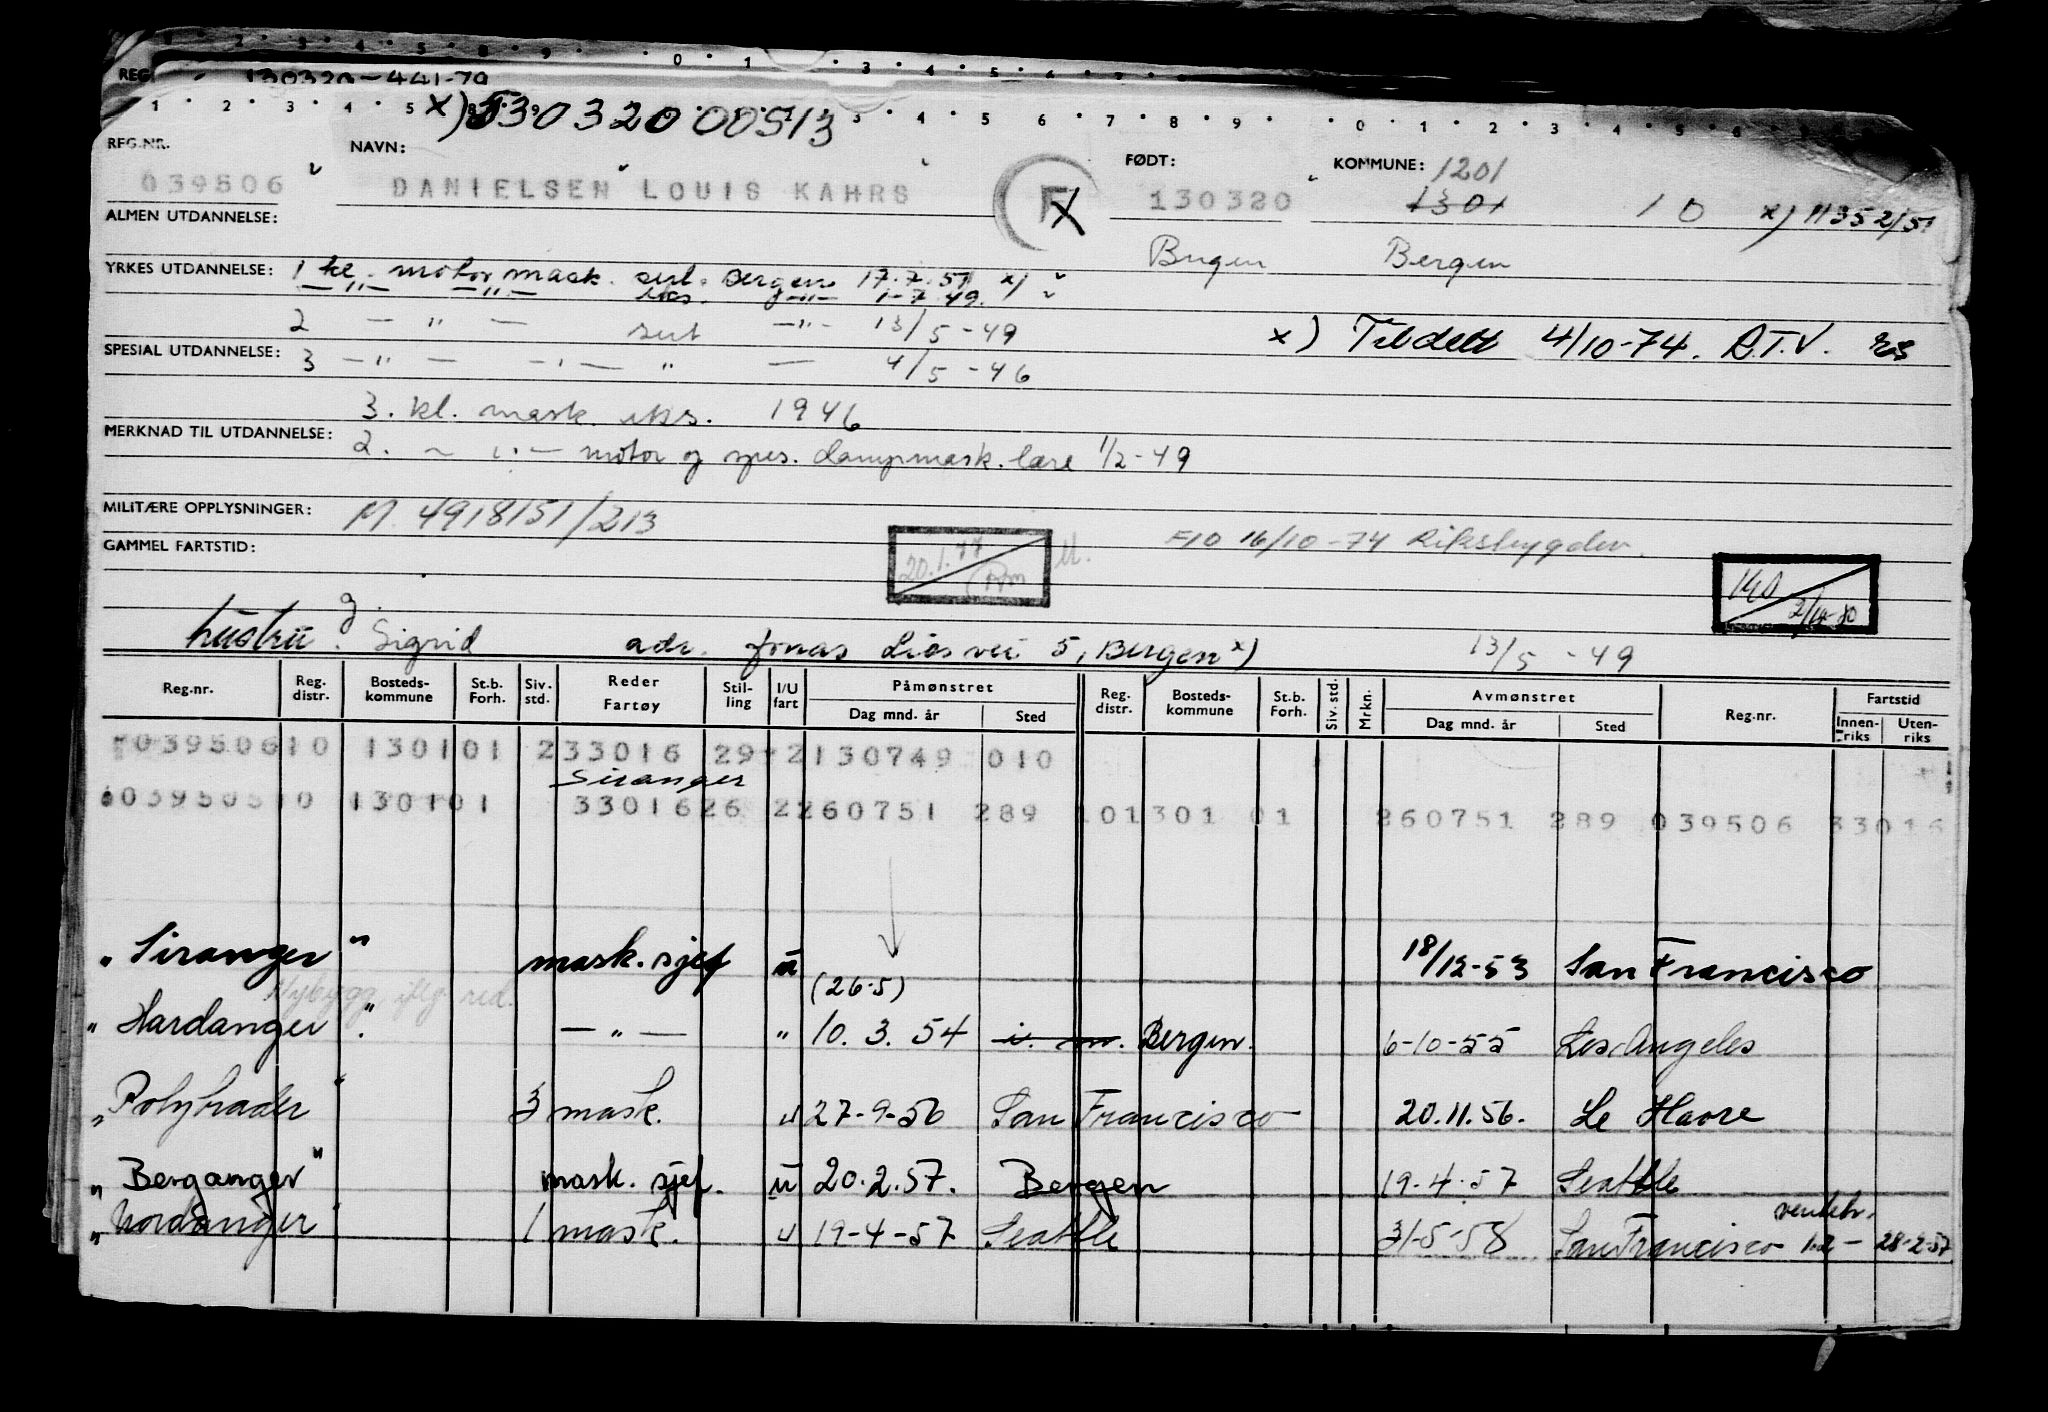 REG. 130320-441-79
x) 130320 00513
REG.NR. NAVN: FØDT: KOMMUNE: 1201
039506 DANIELSEN LOUIS KAHRS F 130320 1301 10 x) 11352/51
ALMEN UTDANNELSE: Bergen Bergen
YRKES UTDANNELSE: 1 kl. motor mask. sert. Bergen 17.7.51 x)
—"— —"— eks. —"— 1-7-49.
2 — " — sert —"— 13/5-49
x) Tildelt 4/10-74. R.T.V.
SPESIAL UTDANNELSE: 3 — " — —"— " — 4/5-46
3. kl. mask. eks. 1946
MERKNAD TIL UTDANNELSE: 2. — " — motor og spes. dampmask. lære 1/2-49
MILITÆRE OPPLYSNINGER: M. 4918151/213
F10 16/10-74 Rikstrygden.
GAMMEL FARTSTID: 20.1.77
hustru g. Sigrid adr. Jonas Lies vei 5, Bergen x) 13/5-49
Reg.nr. Reg. distr. Bosteds- kommune St.b. Forh. Siv. std. Reder Fartøy Stil- ling I/U fart Påmønstret Dag mnd. år Sted Reg. distr. Bosteds- kommune St.b. Forh. Siv. std. Mrkn. Avmønstret Dag mnd. år Sted Reg.nr. Fartstid Innen- riks Uten- riks
039506 10 1301 01 2 33016 29 2 130749 010
Siranger
10 1301 01 33016 26 2 260751 289 10 1301 01 260751 289 039506 33016
"Siranger" mask. sjef u 18/12-53 San Francisco
(26-5)
"Hardanger". — " — " 10. 3. 54 Bergen. 6-10-55 Los Angeles
"Polytrader" 3 mask. u 27-9-56 San Francisco 20.11.56. Le Havre
"Berganger" mask. sjef. u 20.2.57. Bergen 19-4-57 Seattle
"Nordanger" 1 mask. u 19-4-57 Seattle 31-5-58 San Francisco 1.2- 28-2-57